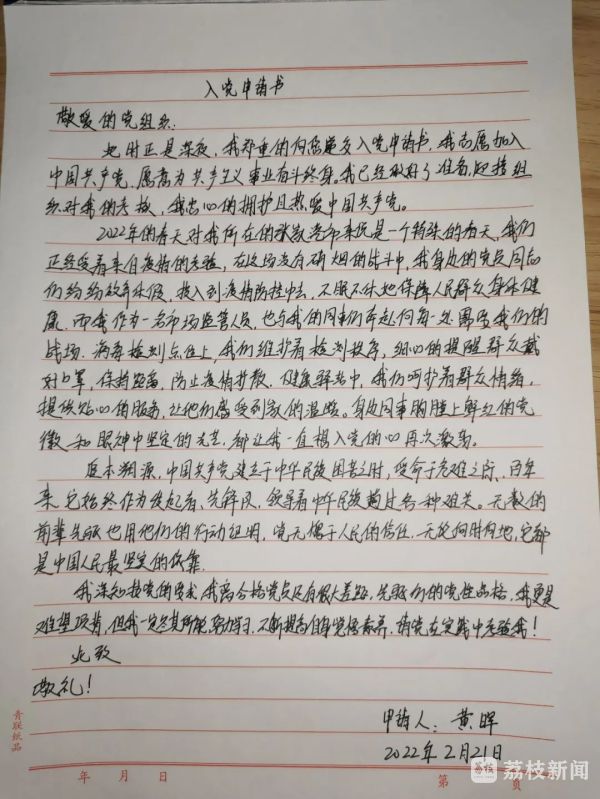 入党申请书
敬爱的党组织：
此时正是深夜，我郑重的向您递交入党申请书。我志愿加入
中国共产党，愿意为共产主义事业奋斗终身。我已经做好了准备，迎接组
织对我的考核，我忠心的拥护且热爱中国共产党。
2022年的春天对我所在的张家港市来说是一个特殊的春天，我们
正经受着来自疫情的考验，在这场没有硝烟的战斗中，我身边的党员同志
们纷纷放弃休假，投入到疫情防控中去，不眠不休地保障人民群众身体健
康。而我作为一名市场监管人员，也与我的同事们奔赴向每一处需要我们的
战场。病毒检测点位上，我们维护着检测秩序，细心的提醒群众戴
好口罩，保持距离，防止疫情扩散。健康驿站中，我们呵护着群众情绪，
提供贴心的服务，让他们感受到家的温暖。身边同事胸膛上鲜红的党
徽和眼神中坚定的光芒，都让我一直想入党的心再次激荡。
返本溯源，中国共产党建立于中华民族困苦之时，受命于危难之际，百年
来，它始终作为发起者、先锋队，领导着中华民族越过各种难关。无数的
前辈先驱也用他们的行动证明，党无愧于人民的信任。无论何时何地，它都
是中国人民最坚定的依靠。
我深知按党的要求，我离合格党员还有很大差距，先驱们的党性品格，我更是
难望项背，但我一定尽其所能，努力学习，不断提高自身党悟素养，请党在实践中考验我！
此致
敬礼！
申请人：黄晖
2022年2月21日
青联纸品
年 月 日
第 页
荔枝新闻